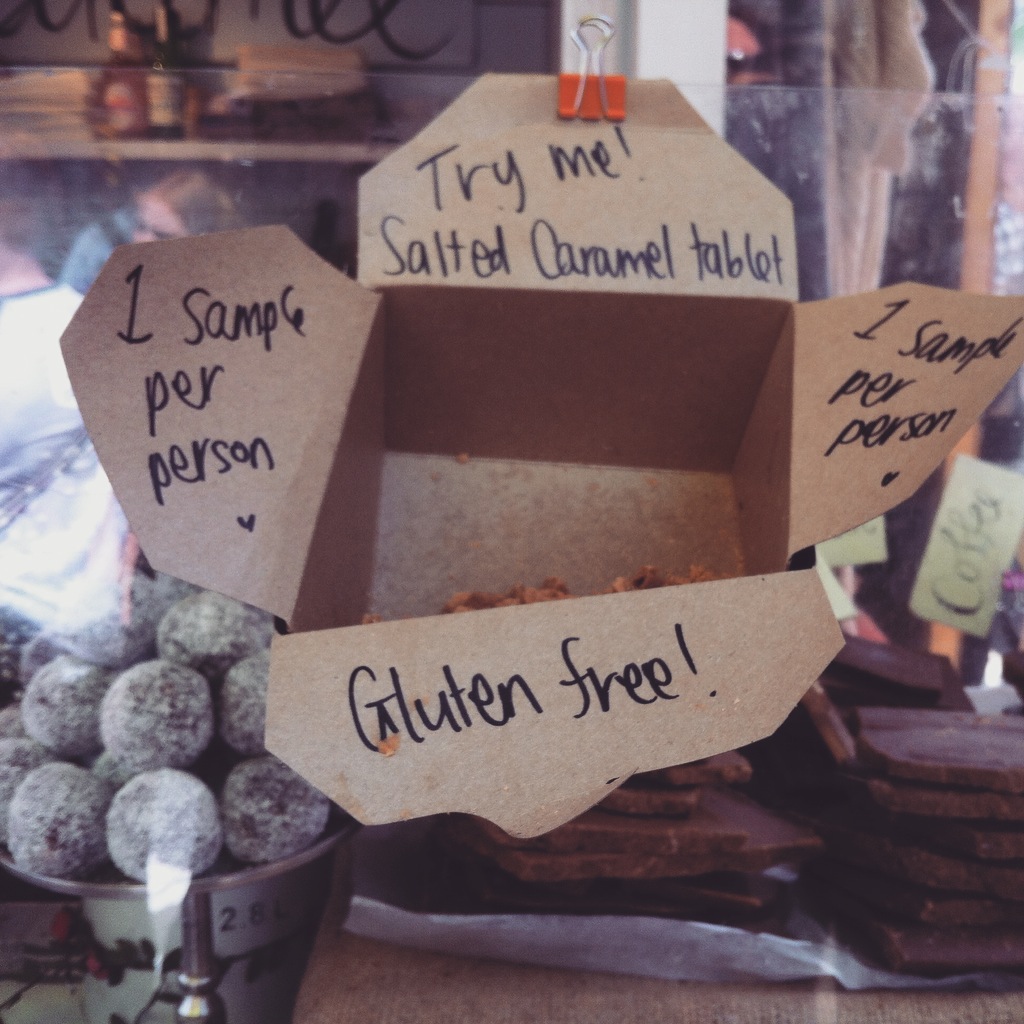 Try me!
Salted Caramel tablet
1 Sample
per
person
1 Sample
per
person
Gluten free!
Coffee
2.8L